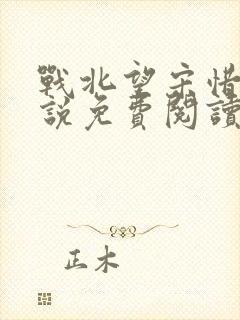 戰北望宋惜
說免費閱讀
正木